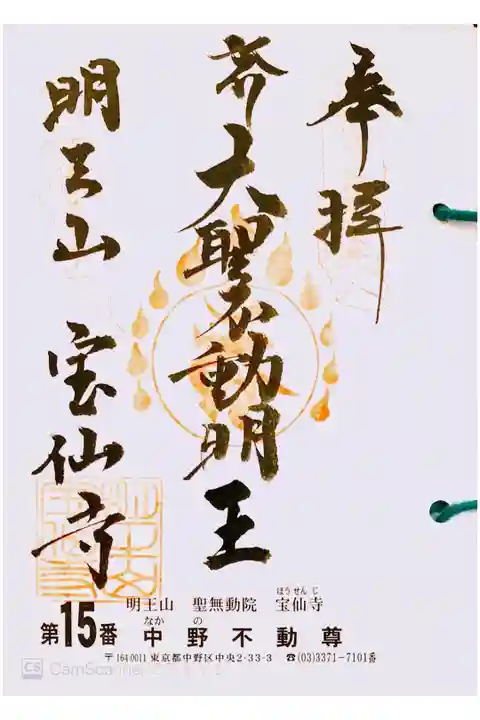 奉拝
大聖不動明王
明王山 宝仙寺
明王山 聖無動院 宝仙寺
ほうせんじ
第15番 中野不動尊
なか の
〒164-0011 東京都中野区中央2-33-3 ☎(03)3371-7101番
CS CamScanner